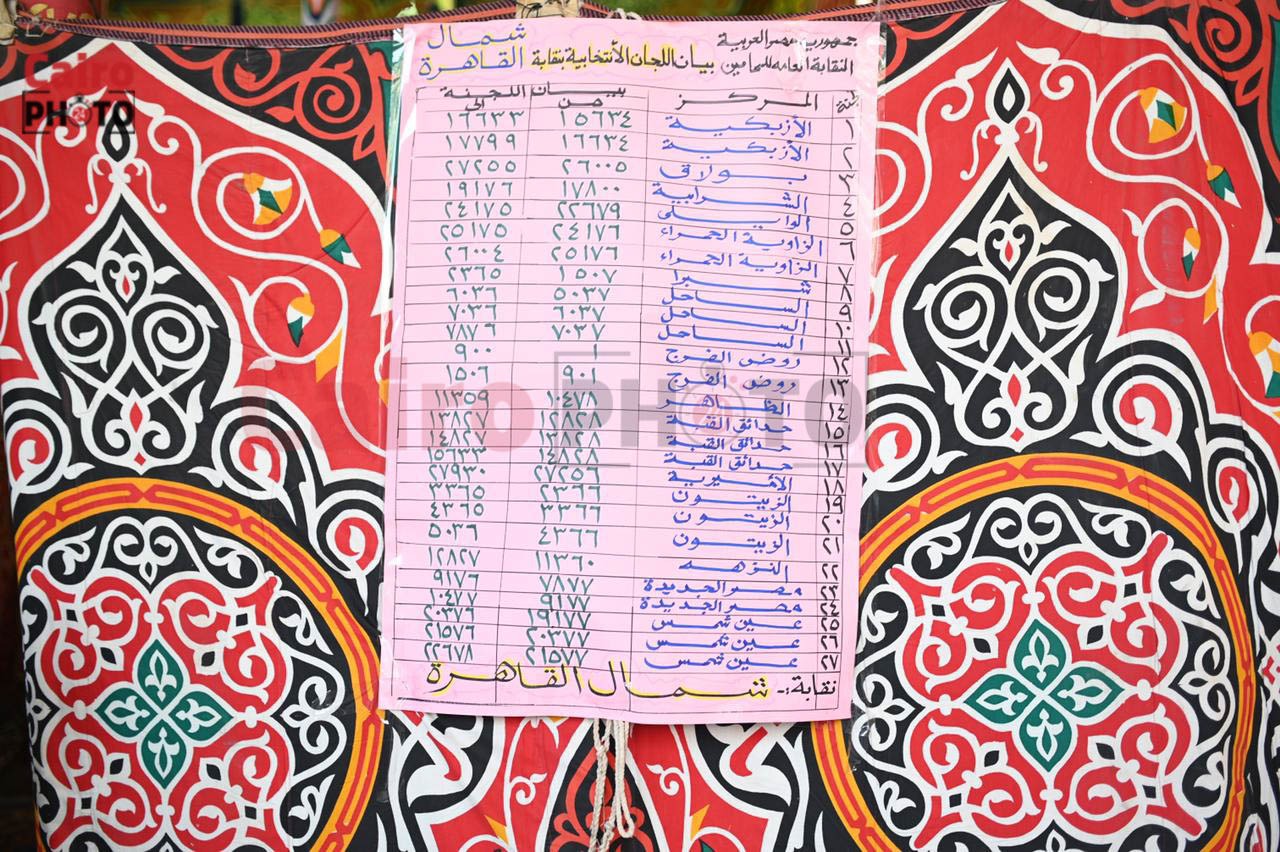 Cairo
PHOTO
جمهورية مصر العربية
شمال
النقابة العامة للمحامين بيان اللجان الأنتخابية بنقابة القاهرة
لجنة المركز بيان اللجنة
من إلى
١ الأزبكية ١٥٦٣٤ ١٦٦٣٣
٢ الأزبكية ١٦٦٣٤ ١٧٧٩٩
٣ بولاق ٢٦٠٠٥ ٢٧٢٥٥
٤ الشرابية ١٧٨٠٠ ١٩١٧٦
٥ الوايلى ٢٢٦٧٩ ٢٤١٧٥
٦ الزاوية الحمراء ٢٤١٧٦ ٢٥١٧٥
٧ الزاوية الحمراء ٢٥١٧٦ ٢٦٠٠٤
٨ شبرا ١٥٠٧ ٢٣٦٥
٩ الساحل ٥٠٣٧ ٦٠٣٦
١٠ الساحل ٦٠٣٧ ٧٠٣٦
١١ الساحل ٧٠٣٧ ٧٨٧٦
١٢ روض الفرج ١ ٩٠٠
١٣ روض الفرج ٩٠١ ١٥٠٦
١٤ الظاهر ١٠٤٧٨ ١١٣٥٩
١٥ حدائق القبة ١٢٨٢٨ ١٣٨٢٧
١٦ حدائق القبة ١٣٨٢٨ ١٤٨٢٧
١٧ حدائق القبة ١٤٨٢٨ ١٥٦٣٣
١٨ الأميرية ٢٧٢٥٦ ٢٧٩٣٠
١٩ الزيتون ٢٣٦٦ ٣٣٦٥
٢٠ الزيتون ٣٣٦٦ ٤٣٦٥
٢١ الزيتون ٤٣٦٦ ٥٠٣٦
٢٢ النزهه ١١٣٦٠ ١٢٨٢٧
٢٣ مصر الجديدة ٧٨٧٧ ٩١٧٦
٢٤ مصر الجديدة ٩١٧٧ ١٠٤٧٧
٢٥ عين شمس ١٩١٧٧ ٢٠٣٧٦
٢٦ عين شمس ٢٠٣٧٧ ٢١٥٧٦
٢٧ عين شمس ٢١٥٧٧ ٢٢٦٧٨
نقابة :- شمال القاهرة
Cairo PHOTO